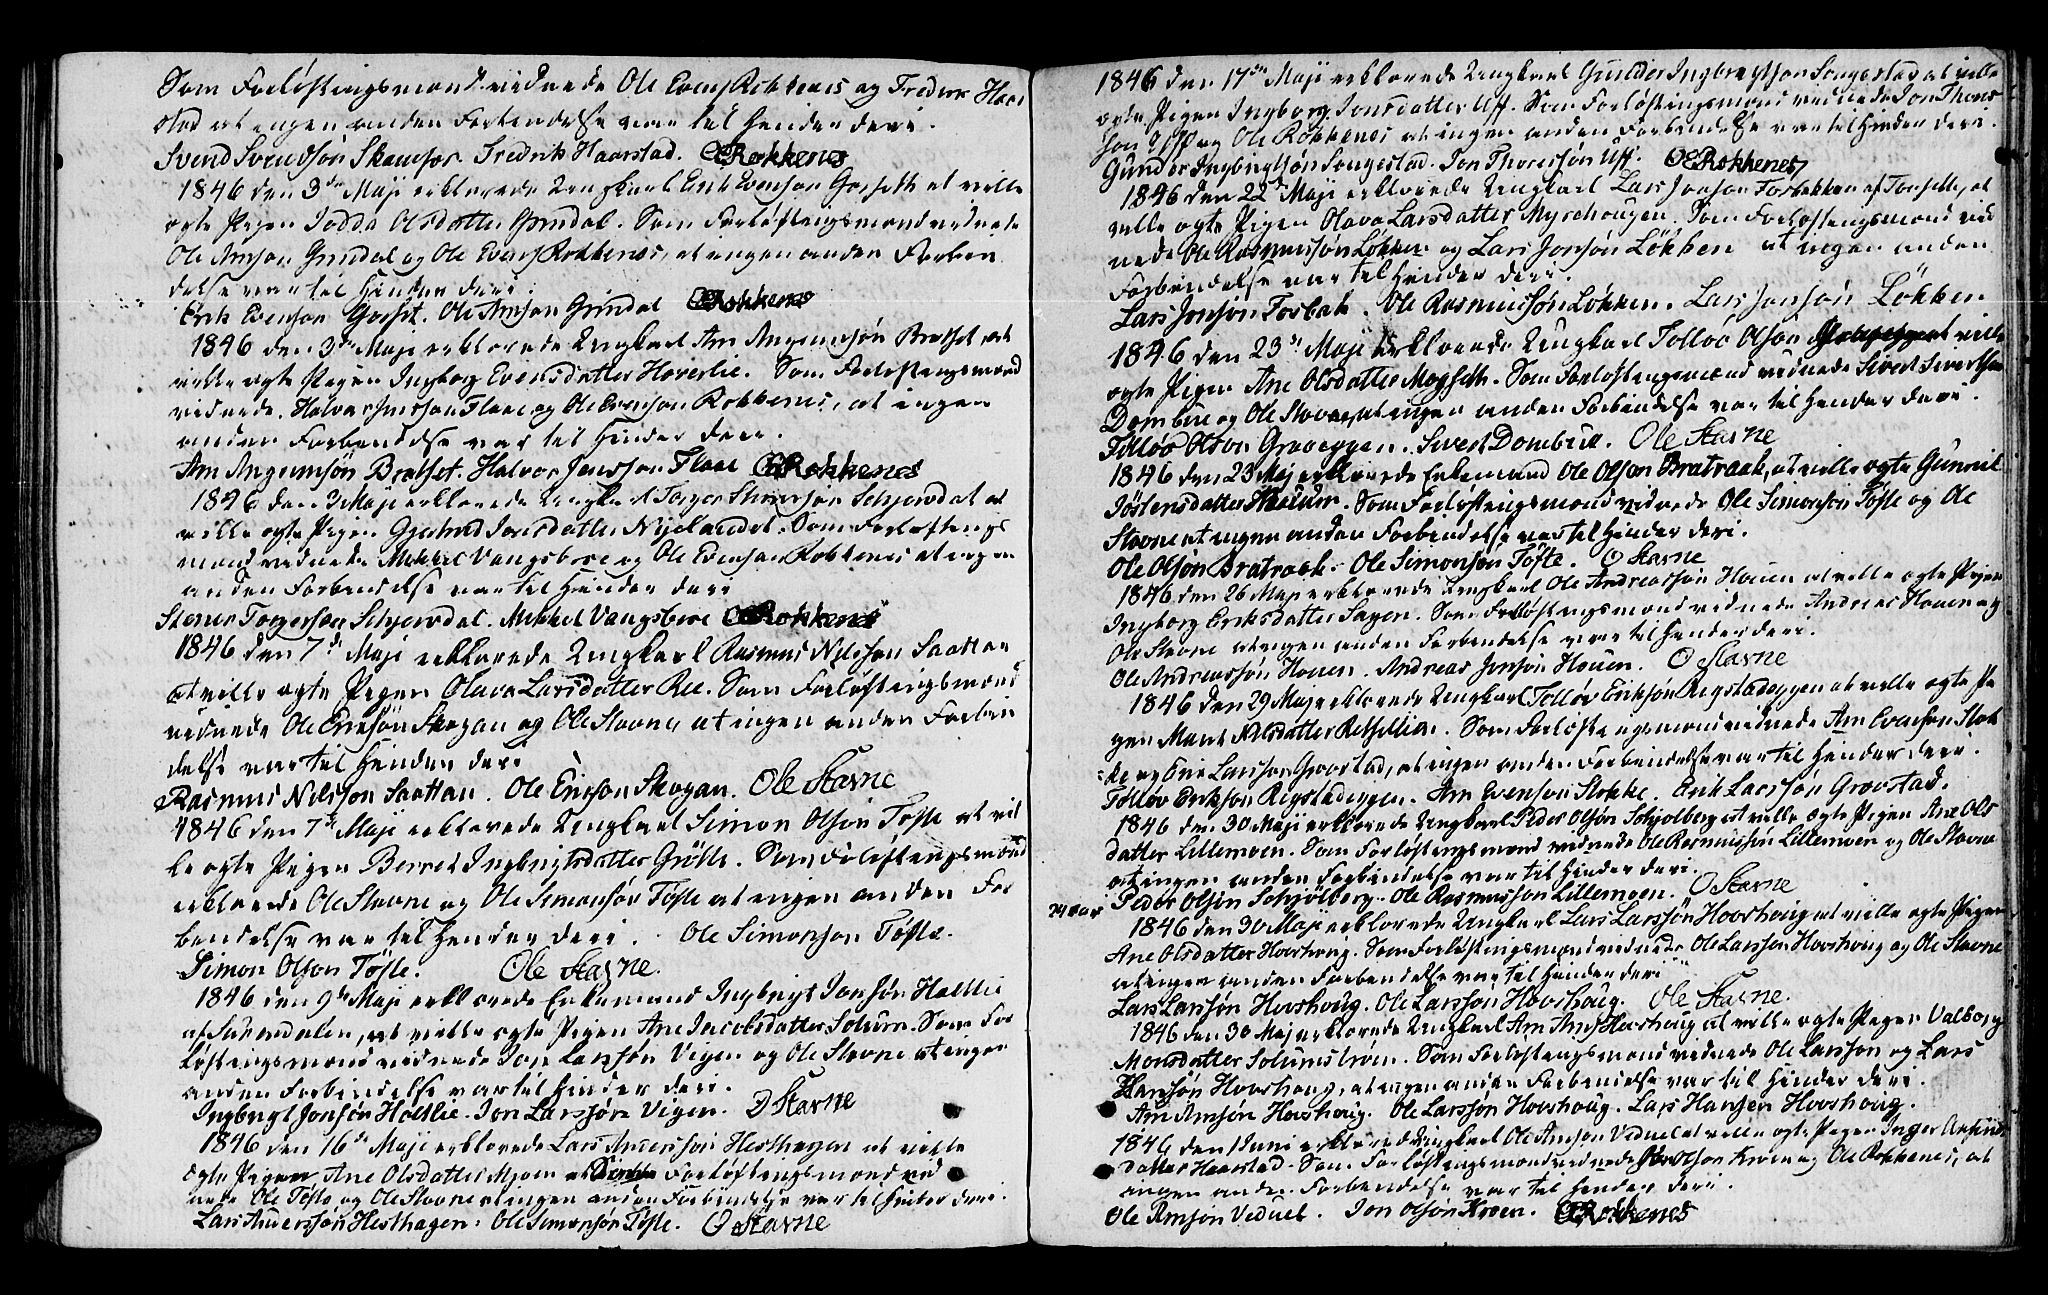 Som Forløftingsmænd vidnede Ole Evens Rokkenes og Fredrik Haar
stad at ingen anden Forbendelse var til Hinder deri.
Svend Svendsön Skamfer. Fredrik Haarstad. O E Rokkenes
1846 den 3de Maji erklærede Ungkarl Erik Evenson Gorseth at ville
egte Pigen Olsdatter Grindal. Som Forløftingsmænd vidnede
Ole Arnson Grindal og Ole Evens Rokkenes, at ingen anden Forbin
delse var til Hinder deri.
Erik Evenson Gorset. Ole Arnson Grindal O E Rokkenes
1846 den 3de Maji erklærede Ungkarl Arn Bratset at
ville egte Pigen Ingborg Evensdatter Hoverlie. Som Forløftingsmænd
vidnede Halvor Jensson Flaae og Ole Evenson Rokkenes, at ingen
anden Forbendelse var til Hinder deri.
Arn Bratset. Halvor Jensson Flaae O E Rokkenes
1846 den 3 Maji erklærede Ungkarl at
ville egte Pigen Jonsdatter Nyelandet. Som Forløftings
mænd vidnede Mekkel Vangsbere og Ole Evenson Rokkenes at ingen
anden Forbindelse var til Hinder deri
Stener Torgerson. Mekkel Vangsbere O E Rokkenes
1846 den 7de Maji erklærede Ungkarl Rasmus Nilsson Saattan
at ville egte Pigen Olava Larsdatter Ree. Som Forløftingsmænd
vidnede Ole Eriksön Skogan og Ole Stavne, at ingen anden Forbin
delse var til Hinder deri
Rasmus Nilsson Saattan. Ole Erikson Skogan. Ole Stavne
1846 den 7de Maji erklærede Ungkarl Simon Olsön Töfte at vil
le egte Pigen Berret Ingbrigtsdatter Gröfte. Som Forløftingsmænd
erklærede Ole Stavne og Ole Simonsön Töfte at ingen anden For
bendelse var til Hender deri. Ole Simonson Töfte.
Simon Olson Töfte. Ole Stavne.
1846 den 9de Maji erklærede Enkemand Ingbrigt Jonsön Holtlie
af Surendalen, at ville egte Pigen Ane Jacobsdatter Solum. Som For
løftingsmænd vidnede Jon Larsön Vigen og Ole Stavne at ingen
anden Forbindelse var til Hinder deri.
Ingbrigt Jonsön Holtlie. Jon Larsön Vigen. O Stavne
1846 den 16de Maji erklærede Lars Andersson Hesthagen at ville
egte Pigen Ane Olsdatter Mjoen Forløftingsmænd vid
nede Ole Töfte og Ole Stavne at ingen anden Forbindelse var til Hinder deri.
Lars Andersön Hesthagen. Ole Simonsön Töfte. O Stavne
1846 den 17de Maji erklærede Ungkarl Gunder Ingbrigtson Songestad at ville
egte Pigen Ingborg Jonsdatter Uff. Som Forløftingsmænd vidnede Jon Thores
son Uff og Ole Rokkenes at ingen anden Forbendelse var til Hinder deri.
Gunder Ingbrigtson Songestad. Jon Thoressön Uff. O E Rokkenes
1846 den 22de Maji erklærede Ungkarl Lars Jonson Forbekken af Tonsette, at
ville egte Pigen Olava Larsdatter Myrehougen. Som Forløftingsmænd vid
nede Ole Rasmusson Løkken og Lars Jonsön Lökken at ingen anden
Forbendelse var til Hinder deri.
Lars Jonson Forbek. Ole Rasmusson Løkken. Lars Jonson Lökken
1846 den 23de Maji erklærede Ungkarl Tolløv Olson Graveggen at ville
egte Pigen Ane Olsdatter Mogseth. Som Forløftingsmænd vidnede Sivert Sivertsen
Dombue og Ole Stavne, at ingen anden Forbindelse var til Hinder deri.
Tölløv Olson Graveggen. Sivert Dombue. Ole Stavne
1846 den 23 Maj erklærede Enkemand Ole Olson Bratraak, at ville egte Gunnil
Jöstensdatter. Som Forløftingsmænd vidnede Ole Simonson Töfte og Ole
Stavne at ingen anden Forbindelse var til Hinder deri.
Ole Olsön Bratraak. Ole Simonson Töfte. O Stavne
1846 den 26 Maji erklærede Ungkarl Ole Andreasson Houen at ville egte Pigen
Ingborg Eriksdatter Sagen. Som Forløftingsmænd vidnede Andreas Houen og
Ole Stavne at ingen anden Forbendelse var til Hinder deri.
Ole Andreassön Houen. Andreas Jonsön Houen. O Stavne
1846 den 29 Maji erklærede Ungkarl Tolløv Eriksön Regstadeggen at ville egte Pi
gen Marit Nilsdatter. Som Forløftingsmænd vidnede Arn Evenson Stok
ke og Erik Larsson Grovstad, at ingen anden Forbindelse var til Hinder deri.
Tolløv Erikson Regstadeggen. Arn Evenson Stokke. Erik Larsön Grovstad.
1846 den 30 Maji erklærede Ungkarl Peder Olsön Schjolberg at ville egte Pigen Ane Ols
datter Lillemoen. Som Forløftingsmænd vidnede Ole Rasmussön Lillemoen og Ole Stavne
at ingen anden Forbindelse var til Hinder deri.
Peder Olsön Schjölberg. Ole Rasmusson Lillemoen. O Stavne
1846 den 30 Maji erklærede Ungkarl Lars Larssön Hovshoug at ville egte Pigen
Ane Olsdatter Hovshoug. Som Forløftingsmænd vidnede Ole Larsson Hovshoug og Ole Stavne
at ingen anden Forbendelse var til Hinder deri
Lars Larssön Hovshoug. Ole Larsson Hovshoug. Ole Stavne.
1846 den 30 Maj erklærede Ungkarl Arn Arns Hovshoug at ville egte Pigen Valborg
Monsdatter Solumströen. Som Forløftingsmænd vidnede Ole Larsson og Lars
Hansön Hovshoug, at ingen anden Forbendelse var til Hinder deri.
Arn Arnsön Hovshoug. Ole Larssön Hovshoug. Lars Hansen Hovshoug.
1846 den 1 Juni erklærede Ungkarl Ole Arnson Veduel at ville egte Pigen Inger
datter Haarstad. Som Forløftingsmænd vidnede Jon Olson Kroen og Ole Rokkenes, at
ingen anden Forbendelse var til Hinder deri.
Ole Arnsön Veduel. Jon Olsön Kroen. O E Rokkenes